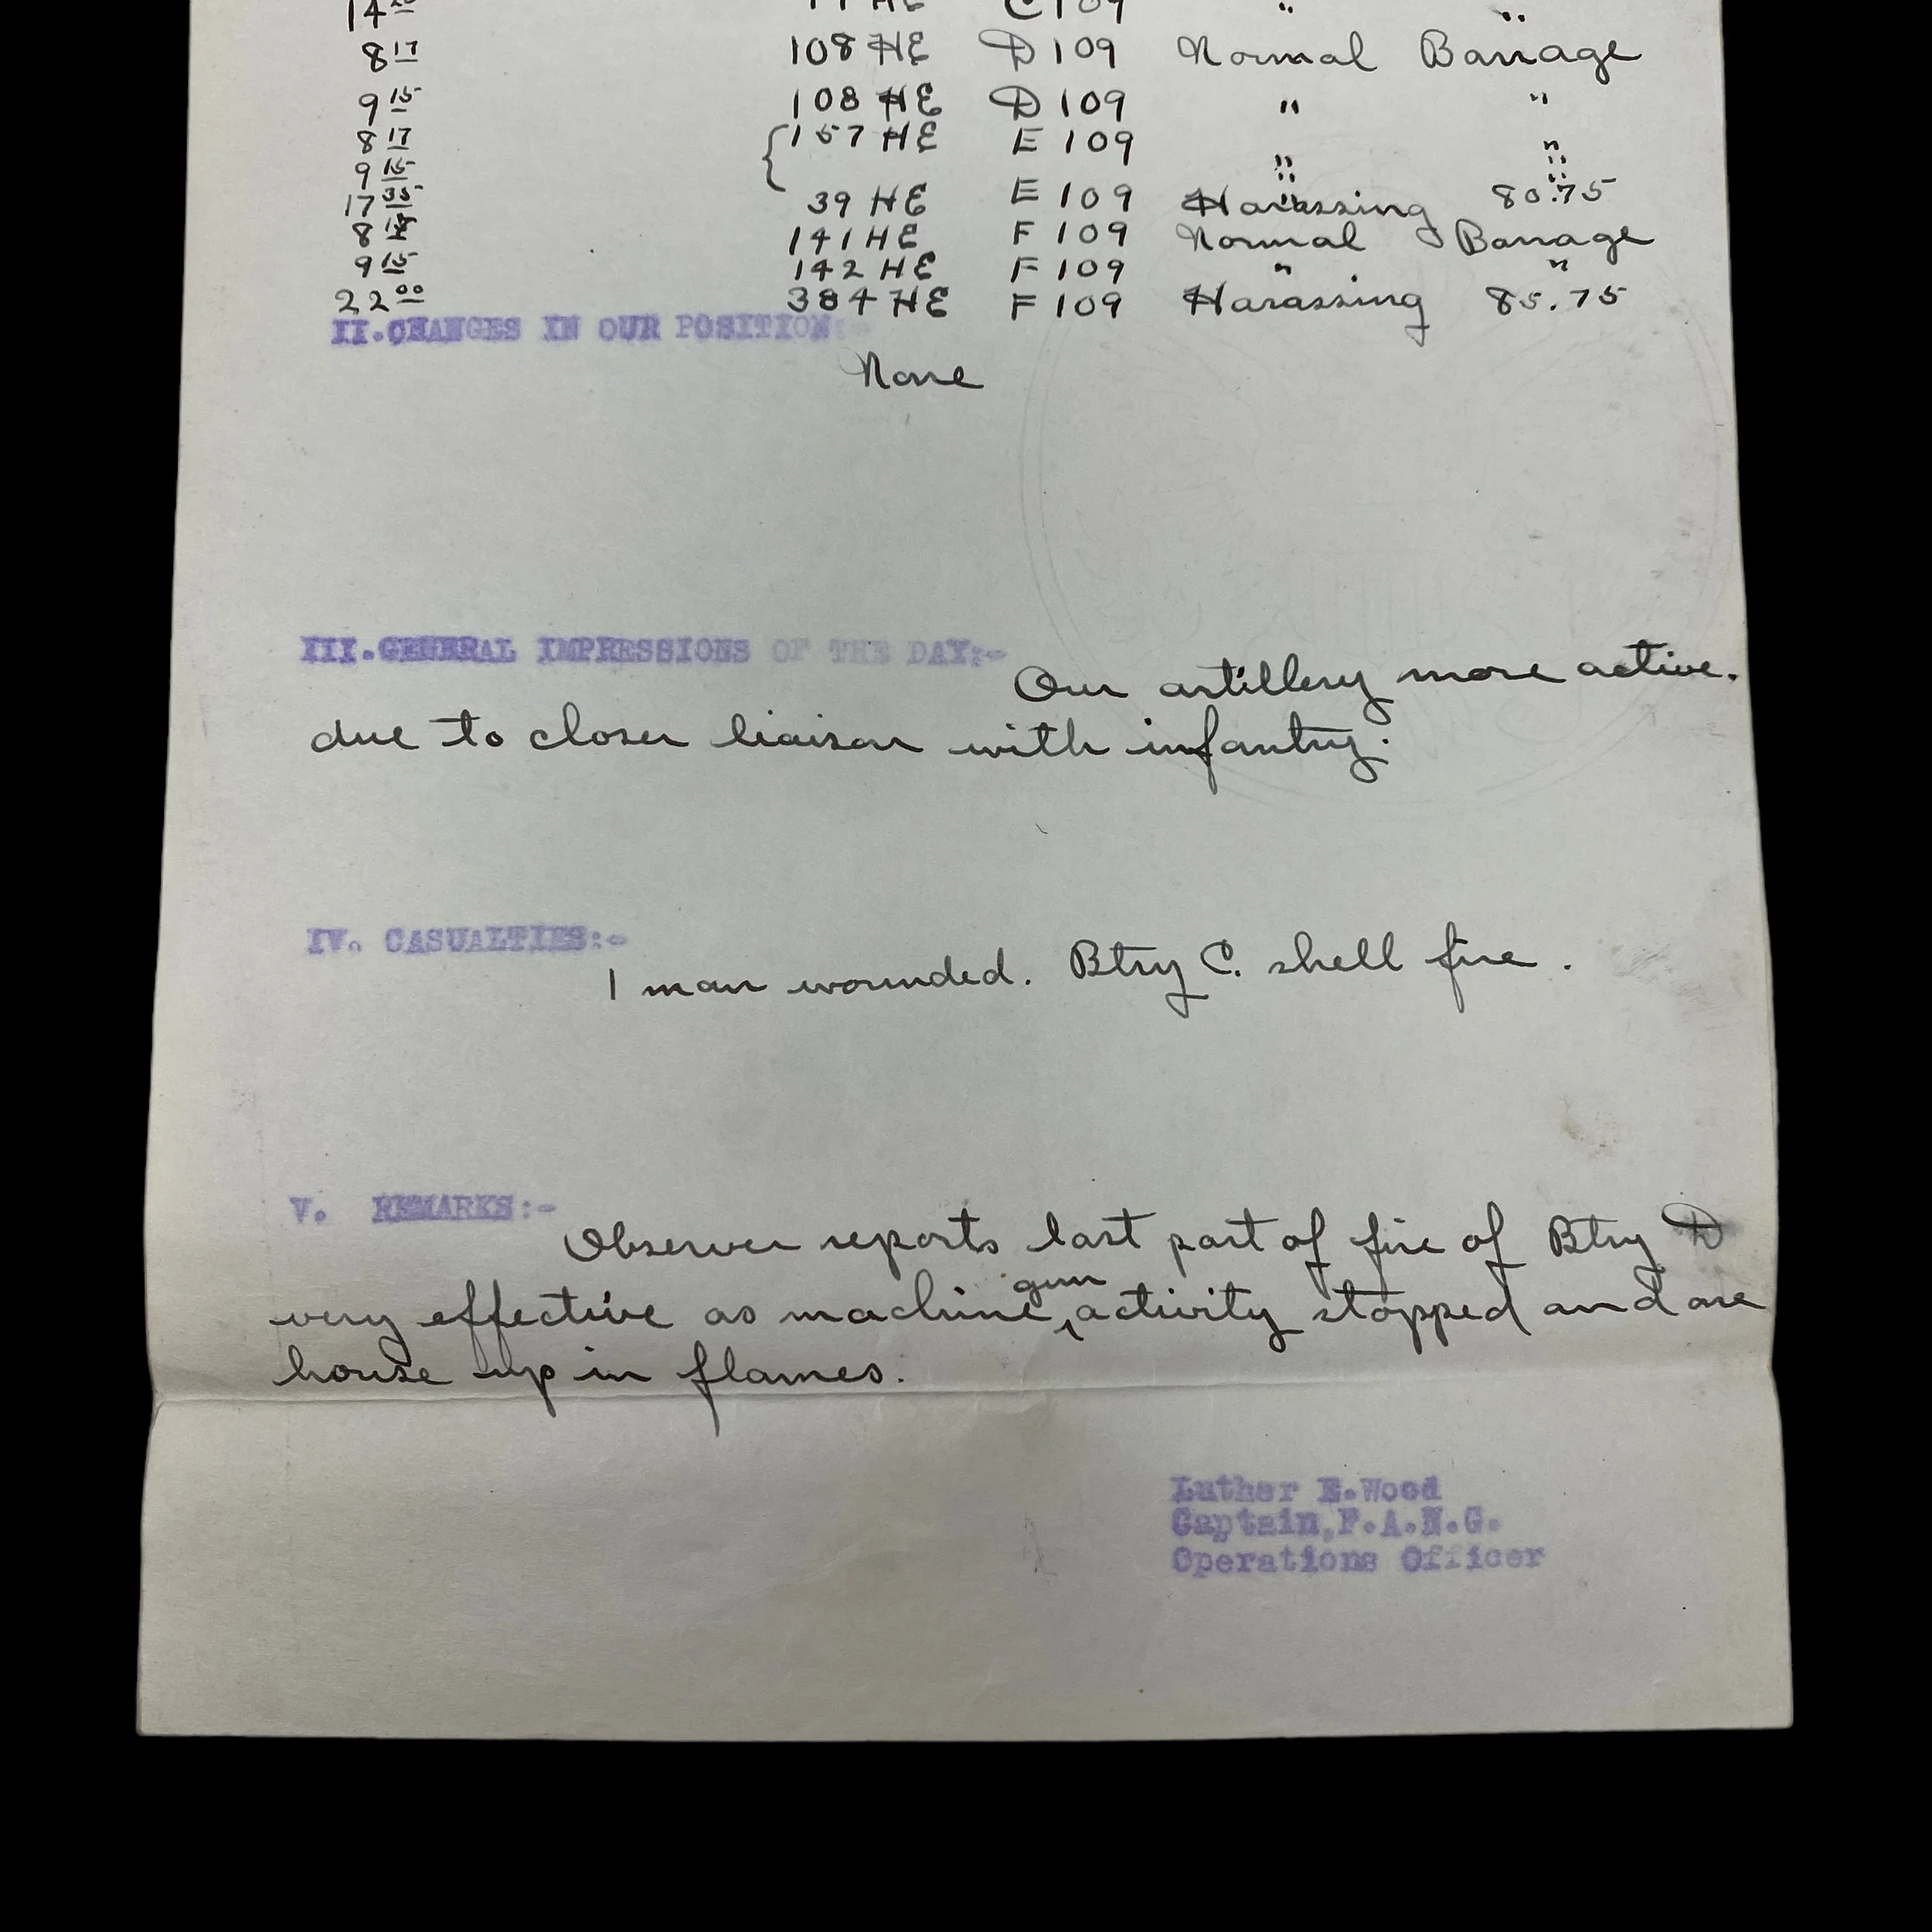 14 C 109 " "
8 17 108 HE D 109 Normal Barrage
9 15 108 HE D 109 " "
8 17 { 157 HE E 109 " "
9 15 " "
17 35 39 HE E 109 Harassing 80.75
8 141 HE F 109 Normal Barrage
9 15 142 HE F 109 " "
22 00 384 HE F 109 Harassing 85.75
II. CHANGES IN OUR POSITION:-
None
III. GENERAL IMPRESSIONS OF THE DAY:-
Our artillery more active.
due to closer liaison with infantry.
IV. CASUALTIES:-
1 man wounded. Btry C. shell fire.
V. REMARKS:-
Observer reports last part of fire of Btry D
very effective as machine gun activity stopped and one
house up in flames.
Luther E. Wood
Captain, F.A.N.G.
Operations Officer